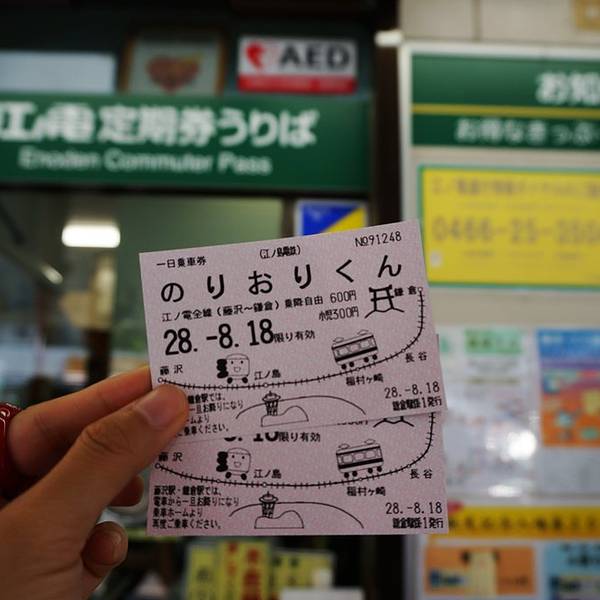 AED
江ノ電 定期券うりば
Enoden Commuter Pass
お知
お得なきっぷ
0466-25-350
一日乗車券
(江ノ島電鉄)
№91248
のりおりくん
江ノ電全線(藤沢〜鎌倉)乗降自由 600円
小児300円
鎌倉
28.-8.18限り有効
藤沢
江ノ島
稲村ヶ崎
長谷
・鎌倉駅では、
一旦お降りになり
ームより
乗車ください。
28.-8.18
鎌倉駅1発行
8.18限り有効
藤沢
江ノ島
稲村ヶ崎
長谷
藤沢駅・鎌倉駅では、
電車から一旦お降りになり
乗車ホームより
再度ご乗車ください。
28.-8.18
鎌倉駅1発行